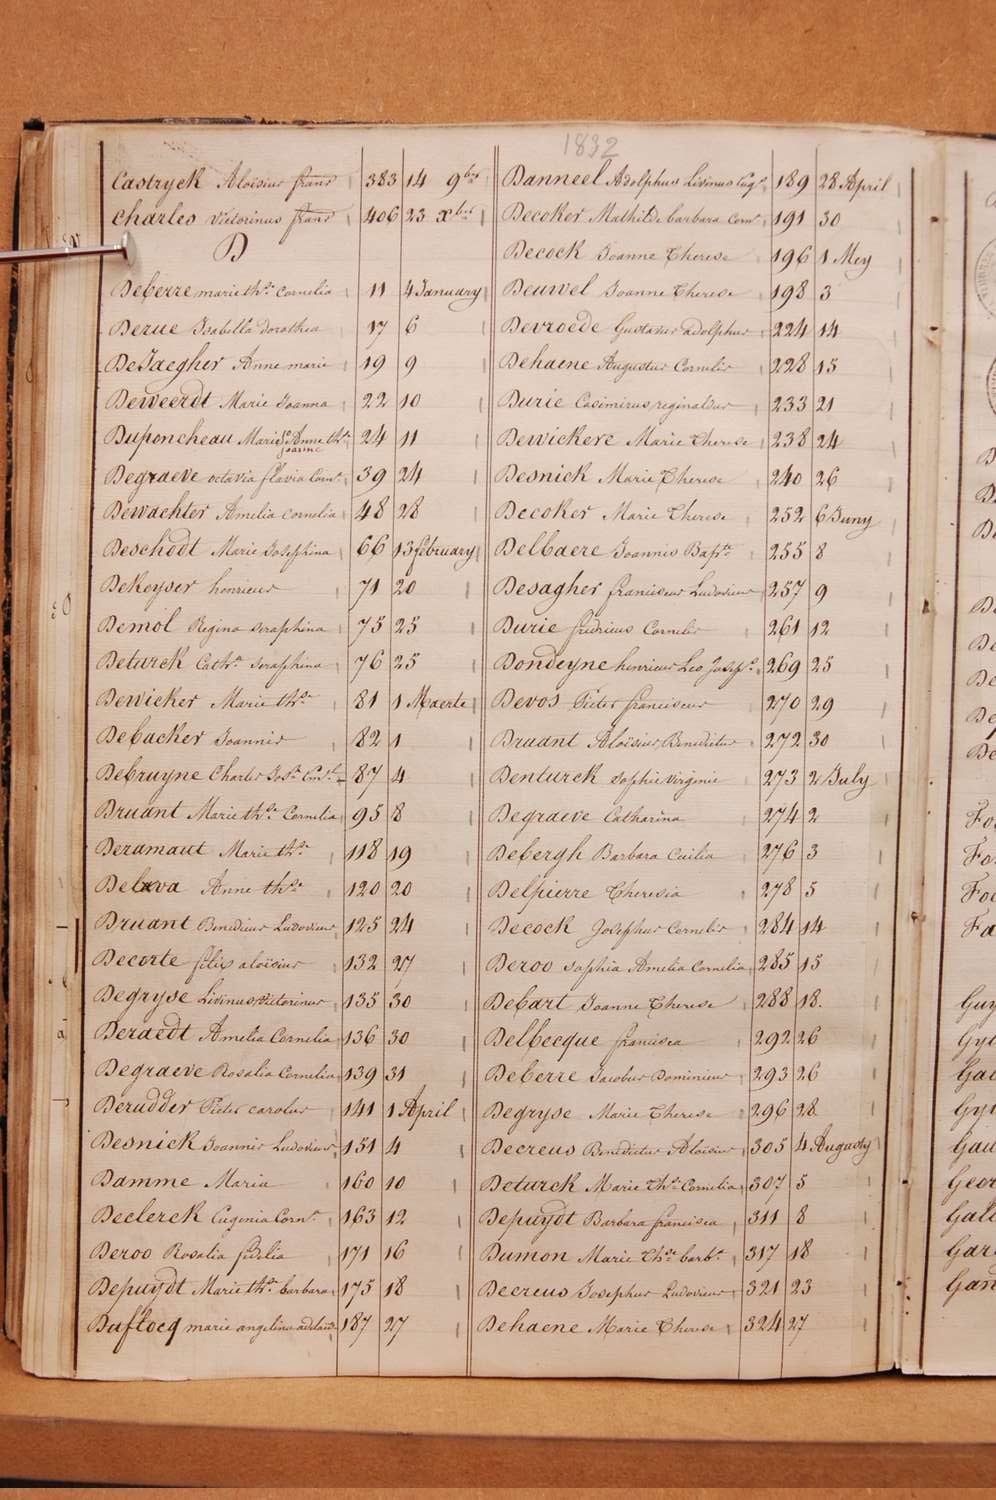 1832
Castryck Aloïsius frans 383 14 9bris
Charles Victorinus frans 406 23 Xbris
D
Deberre marie ths. Cornelia 11 4 January
Derue Isabella Dorothea 17 6
DeJaegher Anne marie 19 9
Deweerdt Marie Joanna 22 10
Duponcheau Marie Anne ths. 24 11
Joanne
Degraeve octavia flavia Corn. 39 24
Dewachter Amelia Cornelia 48 28
Deschodt Marie Josephina 66 13 february
DeKeyser henricus 71 20
Demol Regina Seraphina 75 25
Deturck Cath. Seraphina 76 25
Dewicker Marie ths. 81 1 Maerte
Debacker Joannis 82 1
Debruyne Charles 87 4
Druant Marie ths. Cornelia 95 8
Deramaut Marie ths. 118 19
Anne ths. 120 20
Druant Benedicus Ludovicus 125 24
Decorte felix aloïsius 132 27
Degryse Livinus Victorinus 135 30
Deraedt Amelia Cornelia 136 30
Degraeve Rosalia Cornelia 139 31
Derudder Pieter carolus 141 1 April
Desnick Joannis Ludovicus 151 4
Damme Maria 160 10
Declerck Eugenia Corn. 163 12
Deroo Rosalia fidelia 171 16
Depuydt Marie ths. barbara 175 18
Duflocq marie angelina adelaide 187 27
Danneel Adolphus Livinus Eug. 189 28 April
Decoker Mathilde barbara Corn. 191 30
Decock Joanne Therese 196 1 Mey
Deuwel Joanne Therese 198 3
Devroede Gustavus adolphus 224 14
Dehaene Augustus Cornelis 228 15
Durie Casimirus reginaldus 233 21
Dewickere Marie Therese 238 24
Desnick Marie Therese 240 26
Decoker Marie Therese 252 6 Juny
Delbaere Joannis Bapte. 255 8
Desagher franciscus Ludovicus 257 9
Durie fridricus Cornelis 261 12
Dondeyne henricus Leo Joseph. 269 25
Devos Pieter franciscus 270 29
Druant Aloïsius Benedictus 272 30
Denturck Sophie Virginie 273 2 July
Degraeve Catharina 274 2
Debergh Barbara Cecilia 276 3
Delpierre Theresia 278 5
Decock Josephus Cornelis 284 14
Deroo Sophia Amelia Cornelia 285 15
Debart Joanne Therese 288 18
Delbecque francisca 292 26
Deberre Jacobus Dominicus 293 26
Degryse Marie Therese 296 28
Decreus Benedictus Aloïsius 305 4 Augusty
Deturck Marie Ths. Cornelia 307 5
Depuydt Barbara francisca 311 8
Dumon Marie Ths. barb. 317 18
Decreus Josephus Ludovicus 321 23
Dehaene Marie Therese 324 27